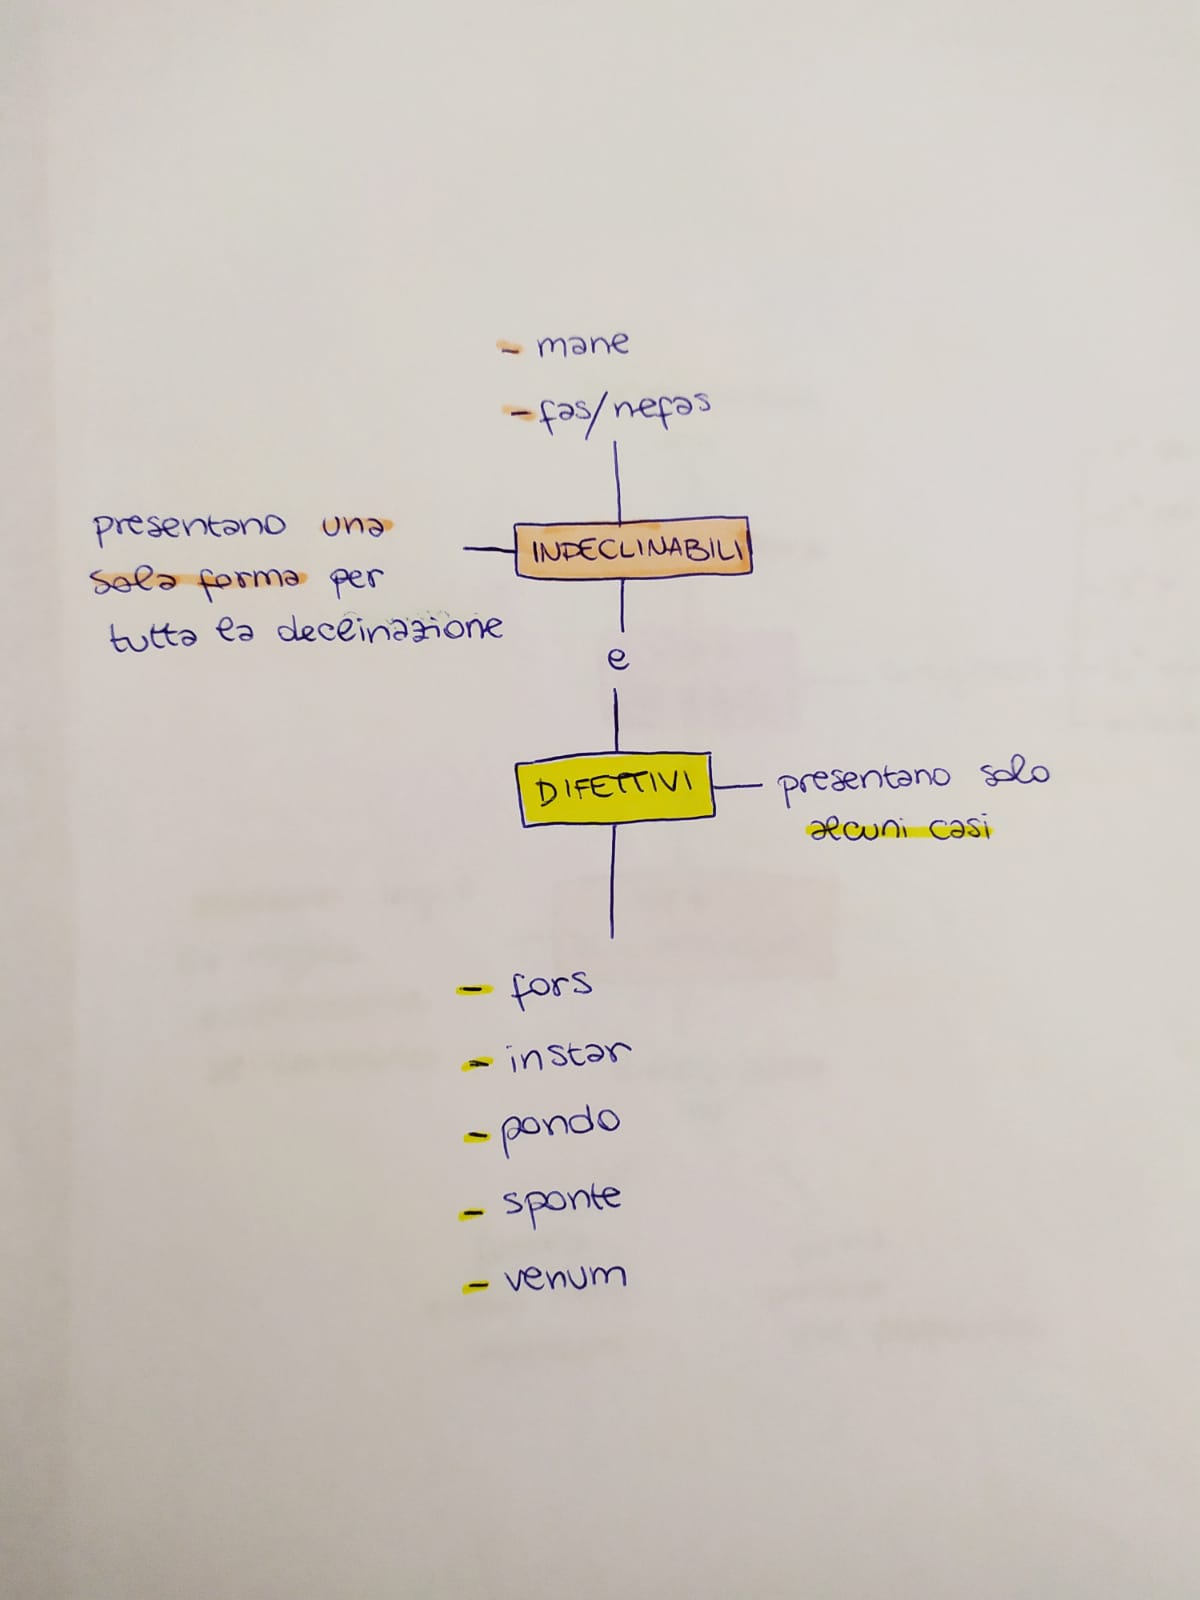 - mane
- fas/nefas
presentano una
sola forma per
tutta la declinazione
INDECLINABILI
e
DIFETTIVI
presentano solo
alcuni casi
- fors
- instar
- pondo
- sponte
- venum